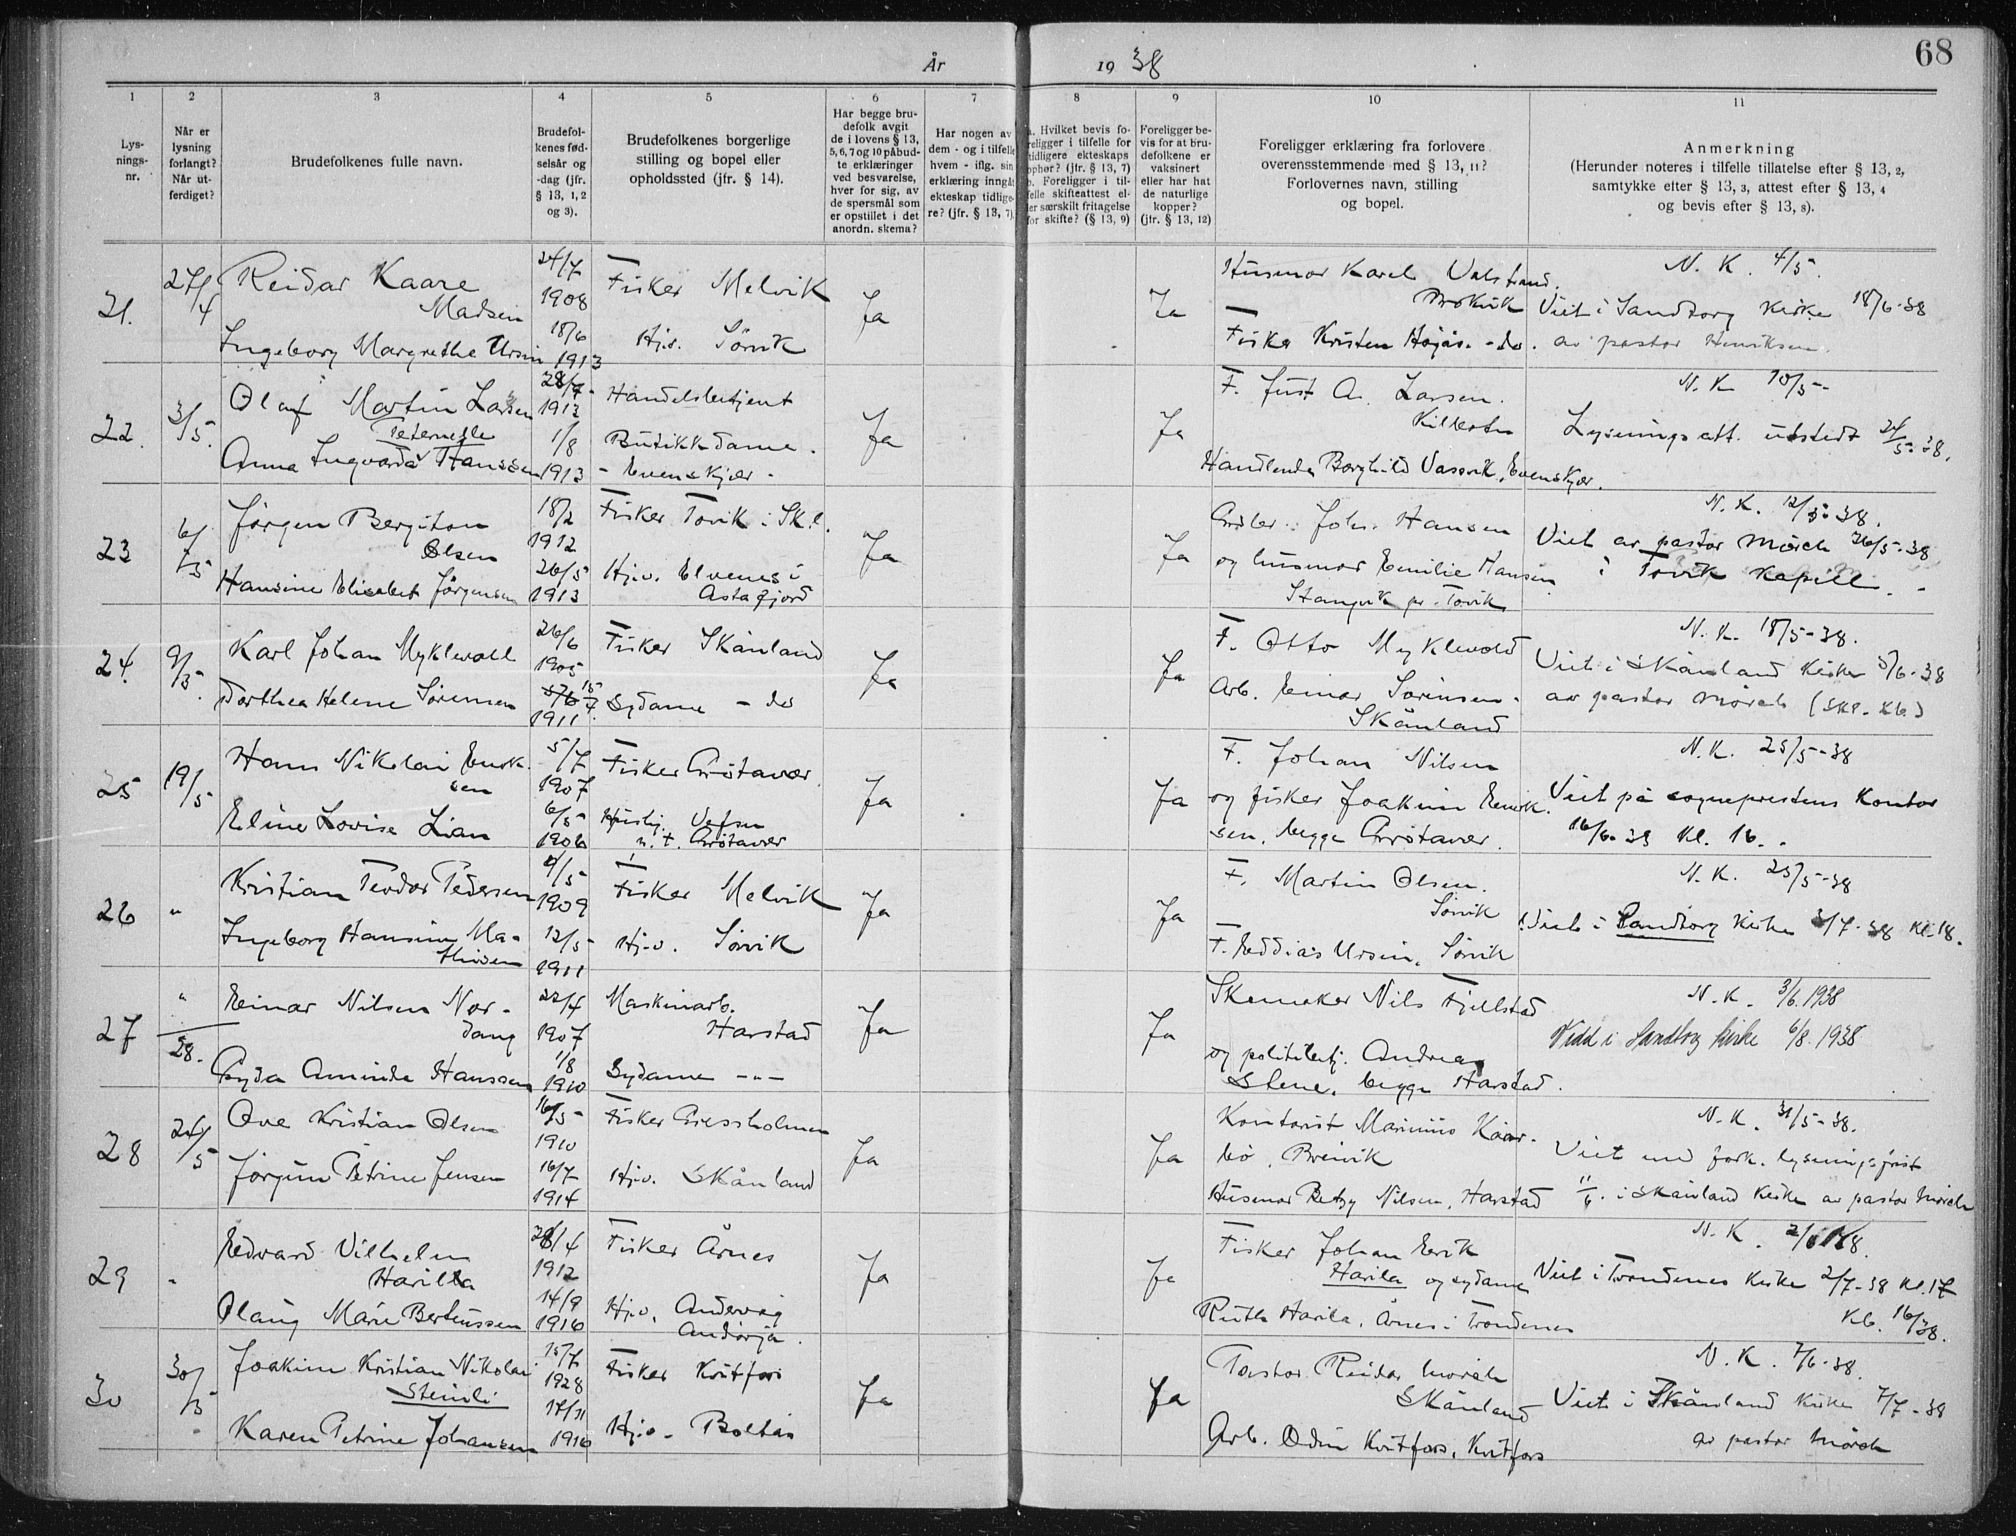 År 1938
68
1 2 3 4 5 6 7 8 9 10 11
Lys-
nings-
nr.
Når er
lysning
forlangt?
Når ut-
ferdiget?
Brudefolkenes fulle navn.
Brudefol-
kenes fød-
selsår og
-dag (jfr.
§ 13, 1, 2
og 3).
Brudefolkenes borgerlige
stilling og bopel eller
opholdssted (jfr. § 14).
Har begge bru-
defolk avgit
de i lovens § 13,
5, 6, 7 og 10 påbud-
te erklæringer
ved besvarelse,
hver for sig, av
de spørsmål som
er opstillet i det
anordn. skema?
Har nogen av
dem - og i tilfelle
hvem - iflg. sin
erklæring inngåt
ekteskap tidlige-
re? (jfr. § 13, 7)
a. Hvilket bevis fo-
religger i tilfelle for
tidligere ekteskaps
ophør? (jfr. § 13, 7)
b. Foreligger i til-
felle skifteattest el-
ler særskilt fritagelse
for skifte? (§ 13, 9)
Foreligger be-
vis for at bru-
defolkene er
vaksinert
eller har hat
de naturlige
kopper?
(jfr. § 13, 12)
Foreligger erklæring fra forlovere
overensstemmende med § 13, 11?
Forlovernes navn, stilling
og bopel.
Anmerkning
(Herunder noteres i tilfelle tillatelse efter § 13, 2,
samtykke efter § 13, 3, attest efter § 13, 4
og bevis efter § 13, 8).
21. 27/4
Reidar Kaare
Madsen
24/7
1908
Fisker Melvik
Ja
Ingeborg Margrethe Ursin
18/6
1913
Hj.v. Sörvik
Ja
Husmor Karel Valstrand,
Brokvik
Fisker Kristen Högås. - do.
N. K. 4/5.
Viet i Sandtorg Kirke 18/6-38
av pastor Henriksen.
22. 3/5.
Olaf Martin Larsen
1913
Handelsbetjent
Ja
Peternelle
Anna Ingvarda Hanssen
1/8
1913
Butikkdame.
- Evenskjer -
Ja
F. Just A. Larsen.
Handlende Borghild Vassvik, Evenskjer.
N. K. 10/5-
Lysningsatt. utstedt 24/5-38.
23 6/ 7/5
Jörgen Bergiton
Olsen
18/2
1912
Fisker Tovik i Skl.
Ja
Hansine Elisabet Jörgensen
26/5
1913
Hj.v. Elvenes i
Astafjord
Ja
Joh. Hansen
og husmor Emilie Hansen
Stangvik pr. Tovik
N. K. 12/5-38.
Viet av pastor Mörch 26/5-38
i Tovik Kapell.
24. 9/5.
Karl Johan Myklevoll
26/6
1905
Fisker Skånland
Ja
Dorthea Helene Sörensen
15/7
1911
Sydame - do
Ja
F. Otto Myklevold
Arb. Einar Sörensen.
Skånland
N. K. 18/5-38.
Viet i Skånland Kirke 5/6-38
av pastor Mörch (Skl. Kb.)
25 19/5
Hans Nikolai Enok-
sen
5/7
1907
Fisker Grötavær
Ja
Eline Lovise Lian
6/5
1906
n. t. Grötavær
Ja
F. Johan Nilsen
og fisker Joakim Enok-
sen, begge Grötavær.
N. K. 25/5-38
Viet på sogneprestens Kontor
16/6-38 Kl. 16.
26 "
Kristian Teodor Pedersen
9/5
1909
Fisker Melvik
Ja
Ingeborg Hansine Ma-
thisen
12/5
1911
Hj.v. Sörvik
Ja
F. Martin Olsen.
Sörvik
F. Eddias Ursin, Sörvik
N. K. 25/5-38
Viet i Sandtorg Kirke 3/7-38 Kl. 18.
27 " 28.
Einar Nilsen Nor-
dang
22/4
1907
Maskinarb.
Harstad
Ja
Gyda Aminda Hanssen
1/8
1910
Sydame -"-
Ja
Skomaker Nils Fjellstad
og politibetj. Andreas
Stene, begge Harstad.
N. K. 3/6.1938
Vidd i Sandtorg kirke 6/8.1938
28 24/5
Ove Kristian Olsen
16/5
1910
Fisker Gressholmen
Ja
Jörgine Petrine Jensen
16/7
1914
Hj.v. Skånland
Ja
Kontorist Marinius Kaar-
bö, Breivik
Husmor Betzy Nilsen, Harstad
N. K. 31/5-38.
Viet med fork. lysningsfrist
11/6. i Skånland Kirke av pastor Mörch
29 "
Edvard Vilhelm
Harilla
28/4
1912
Fisker Årnes
Ja
Olaug Marie Berteussen
14/9
1916
Hj.v. Andervåg
Andörja.
Ja
Fisker Johan Erik
Harila og sydame
Ruth Harila, Årnes i Trondenes
N. K.
Viet i Trondenes Kirke 2/7-38 Kl. 17
Kb. 16/38.
30 30/5
Joakim Kristian Nikolai
Steinli
15/7
1928
Fisker Kvitfors
Ja
Karen Petrine Johansen
17/11
1916
Hj.v. Boltås
Ja
Pastor Reidar Mörch
Skånland
Arb. Odin Kvitfors, Kvitfors
N. K. 7/6-38.
Viet i Skånland Kirke 7/7-38
av pastor Mörch